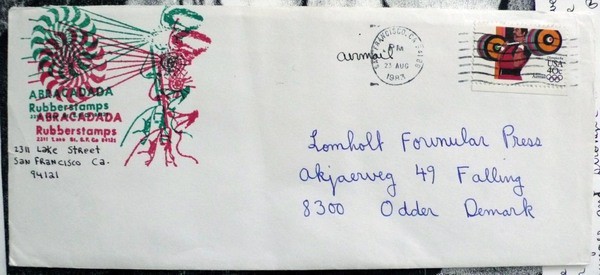 ABRACADADA
Rubberstamps
ABRACADADA
Rubberstamps
2311 Lake St. S.F. Ca 94121
2311 Lake Street
San Francisco Ca.
94121
airmail
SAN FRANCISCO, CA
PM
23 AUG
1983
USA
40c
Lomholt Formular Press
Akjaerveg 49 Falling
8300 Odder Demark